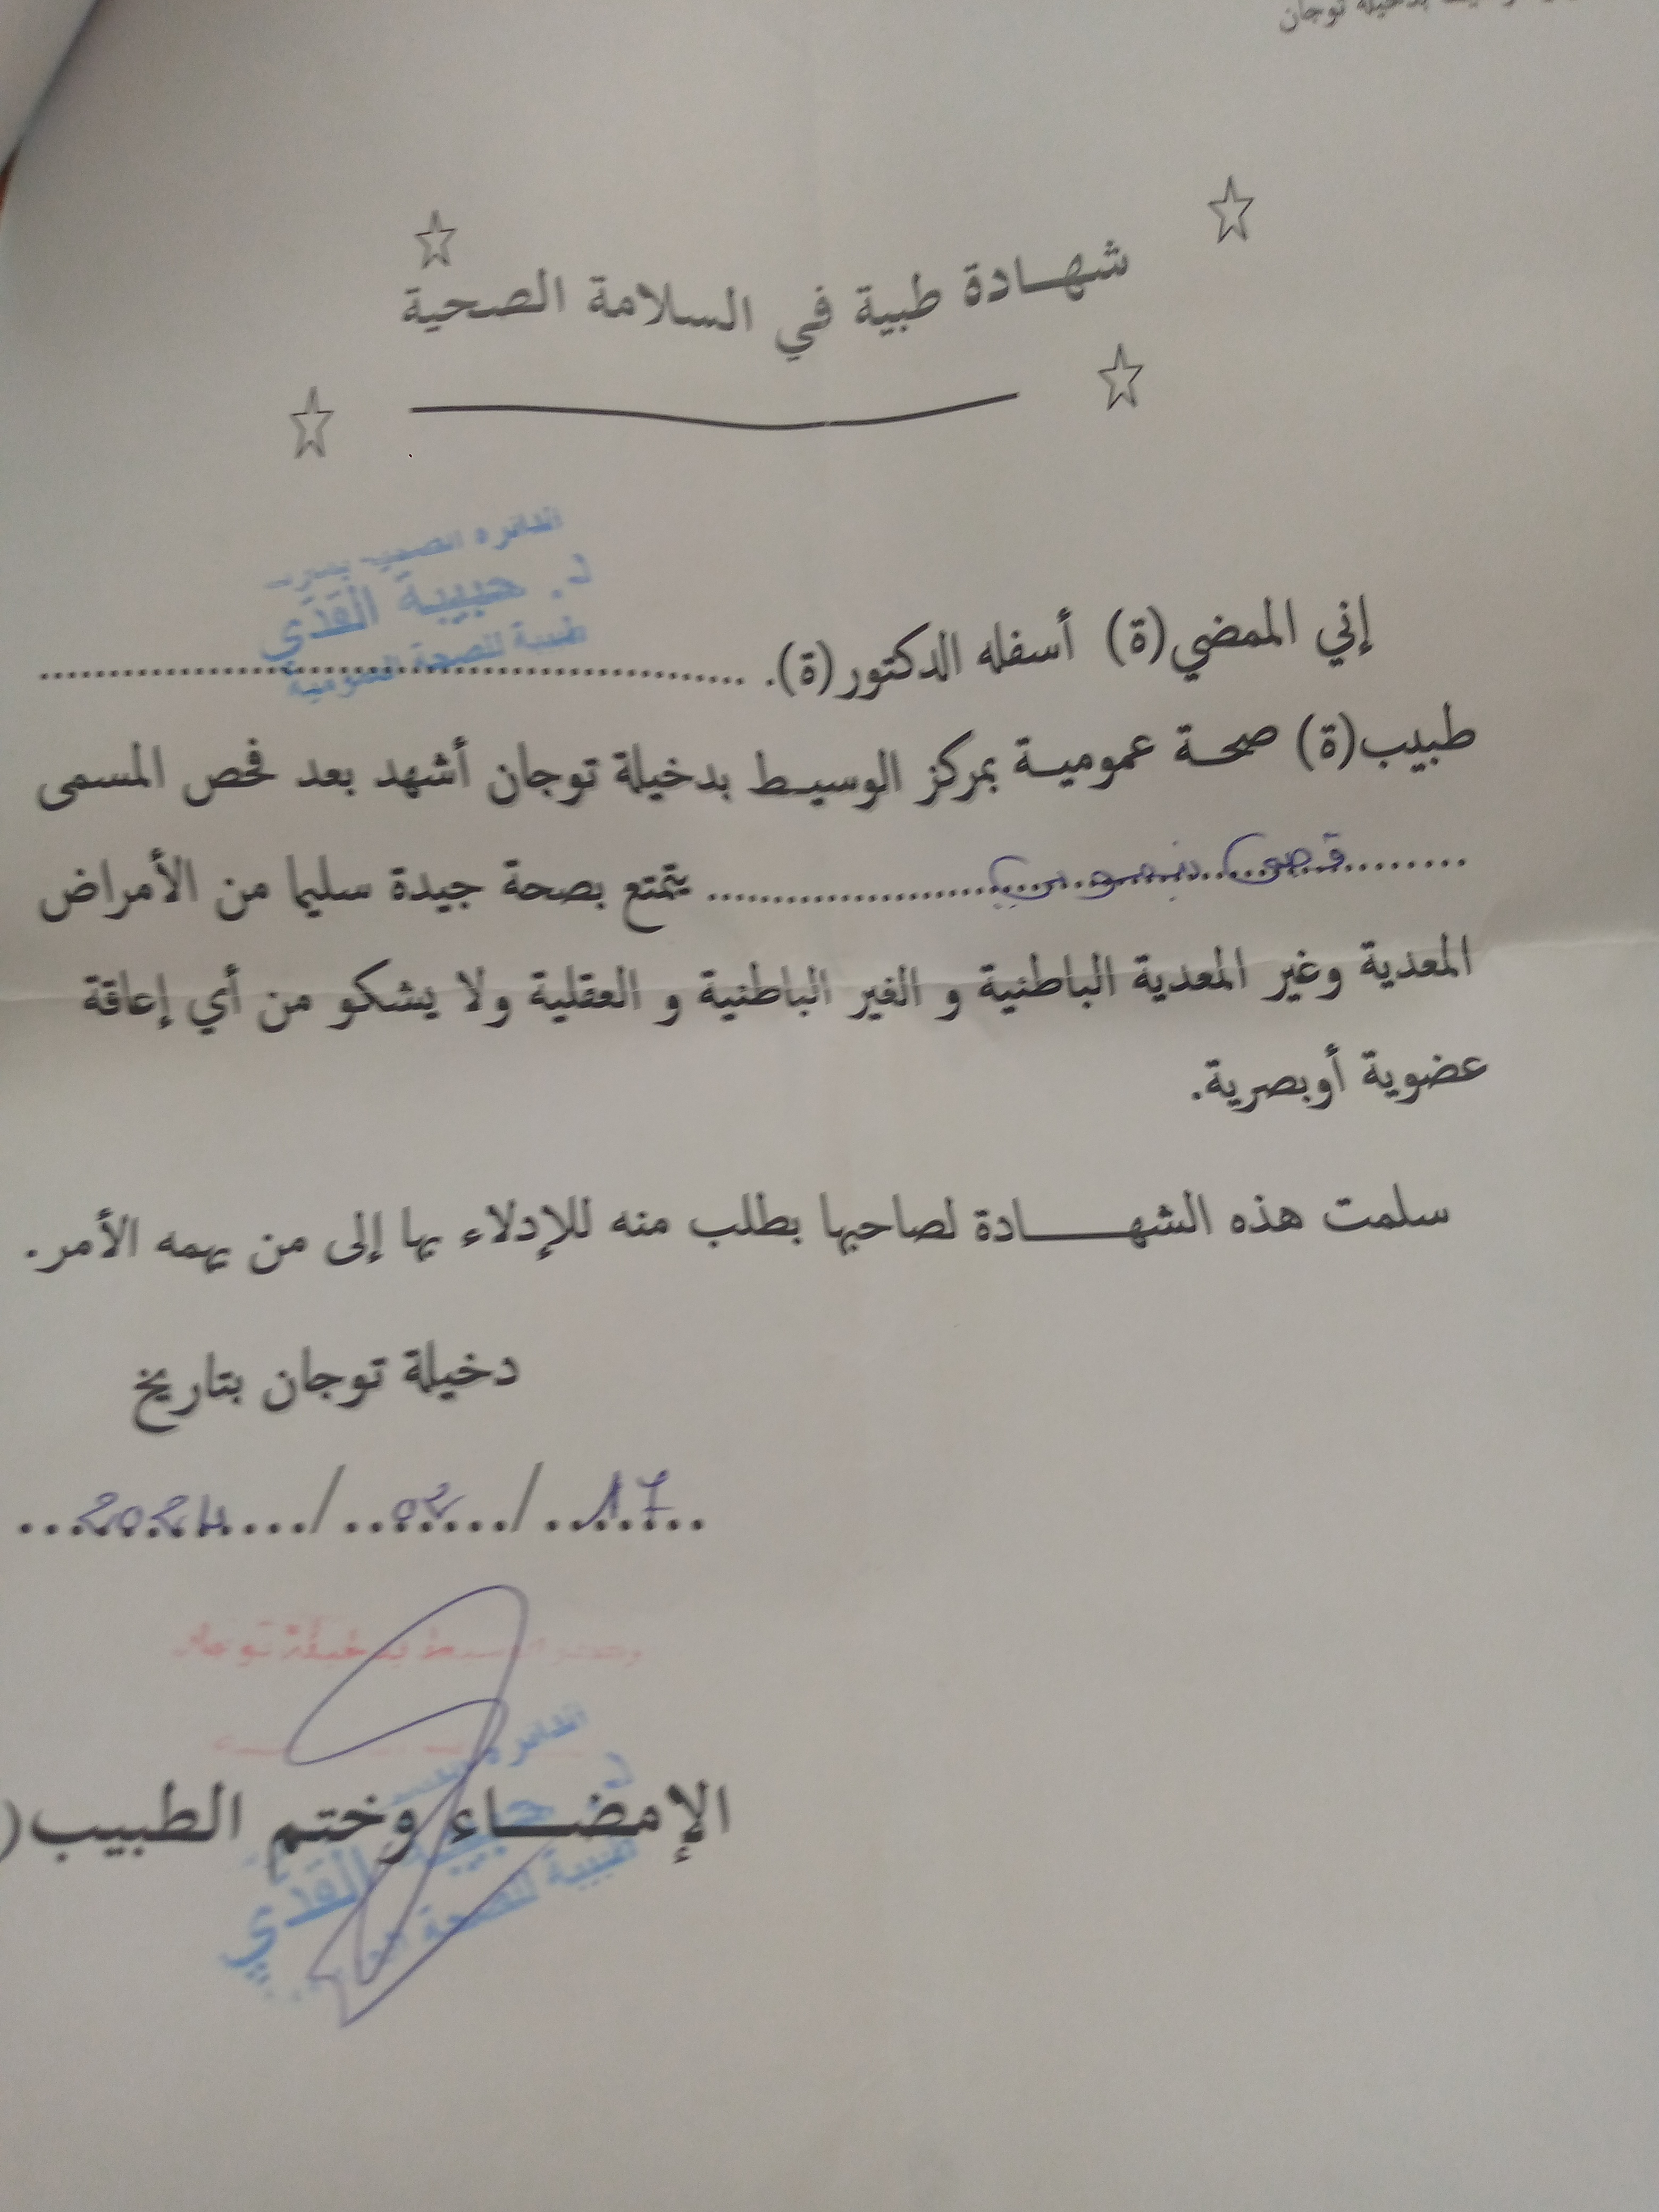 بدخيلة توجان
شهادة طبية في السلامة الصحية
الدائرة الصحية
د. حبيبة القذي
طبيبة للصحة العمومية
إني الممضي(ة) أسفله الدكتور(ة).
طبيب(ة) صحة عمومية بمركز الوسيط بدخيلة توجان أشهد بعد فحص المسمى
قصي يتمتع بصحة جيدة سليما من الأمراض
المعدية وغير المعدية الباطنية و الغير الباطنية و العقلية ولا يشكو من أي إعاقة
عضوية أوبصرية.
سلمت هذه الشهادة لصاحبها بطلب منه للإدلاء بها إلى من يهمه الأمر.
دخيلة توجان بتاريخ
17/02/2024
بدخيلة توجان
الدائرة
الإمضاء وختم الطبيب(
د. حبيبة القذي
طبيبة للصحة